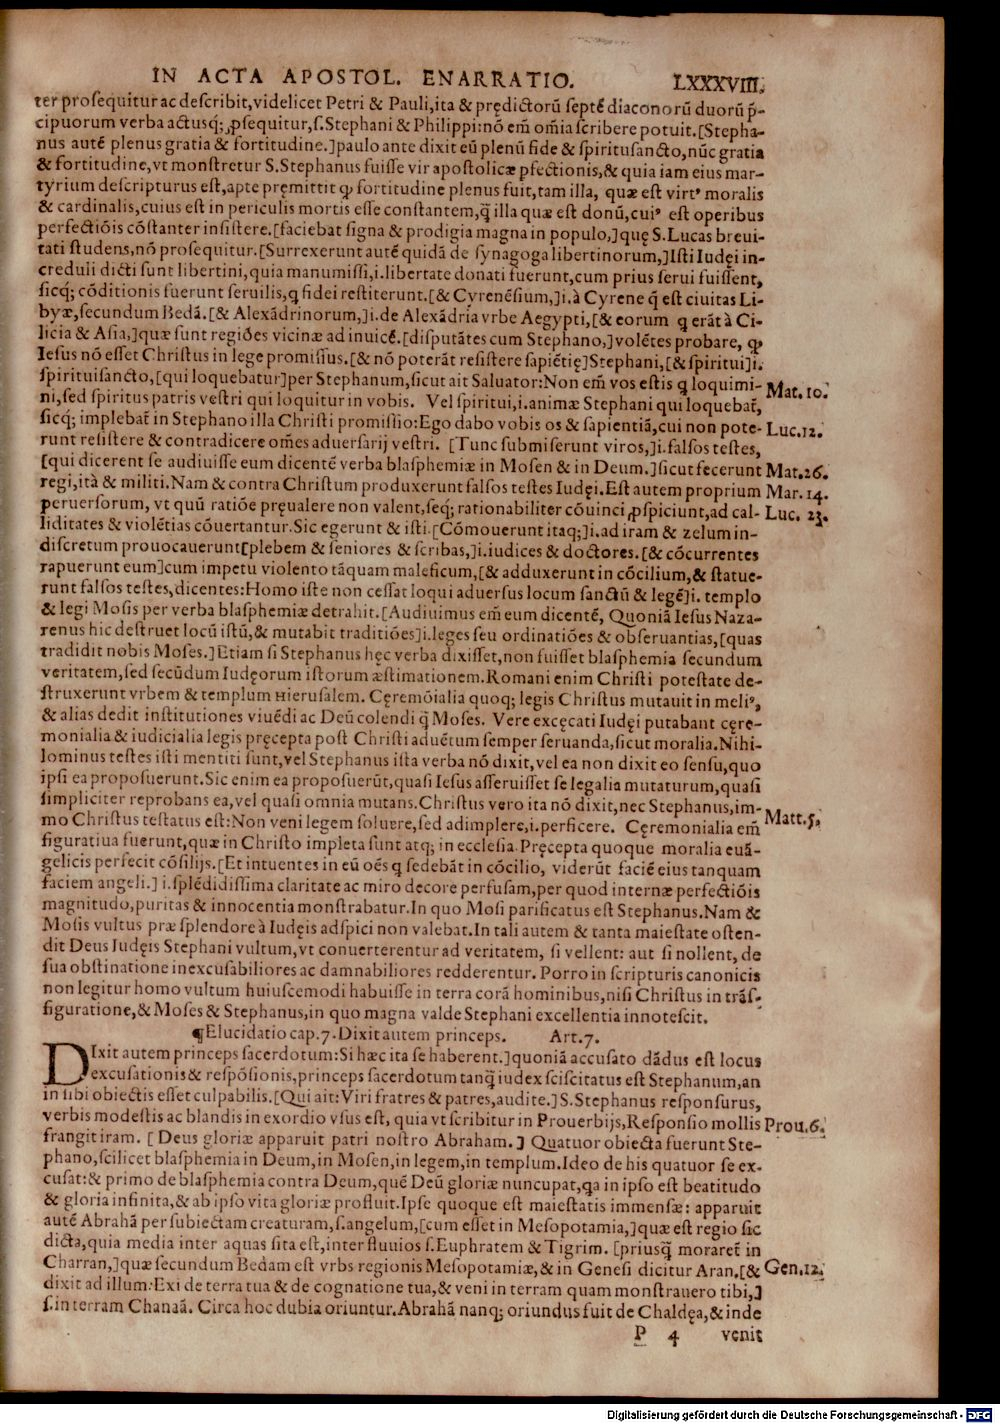 IN ACTA APOSTOL. ENARRATIO. LXXXVIII.
ter prosequitur ac describit, videlicet Petri & Pauli, ita & prędictorū septē diaconorū duorū p̄-
cipuorum verba actusq; ꝓsequitur, s. Stephani & Philippi: nō em̄ om̄ia scribere potuit. [Stepha-
nus autē plenus gratia & fortitudine.] paulo ante dixit eū plenū fide & spiritusancto, nūc gratia
& fortitudine, vt monstretur S. Stephanus fuisse vir apostolicæ pfectionis, & quia iam eius mar-
tyrium descripturus est, apte pręmittit qꝫ fortitudine plenus fuit, tam illa, quæ est virtꝰ moralis
& cardinalis, cuius est in periculis mortis esse constantem, q̄ illa quæ est donū, cuiꝰ est operibus
perfectiōis cōstanter insistere. [faciebat signa & prodigia magna in populo,] quę S. Lucas breui-
tati studens, nō prosequitur. [Surrexerunt autē quidā de synagoga libertinorum,] Isti Iudęi in-
creduli dicti sunt libertini, quia manumissi, i. libertate donati fuerunt, cum prius serui fuissent,
sicq; cōditionis fuerunt seruilis, q fidei restiterunt. [& Cyrenēsium,] i. à Cyrene q̄ est ciuitas Li-
byæ, secundum Bedā. [& Alexādrinorum,] i. de Alexādria vrbe Aegypti, [& eorum q erāt à Ci-
licia & Asia,] quæ sunt regiōes vicinæ ad inuicē. [disputātes cum Stephano,] volētes probare, qꝫ
Iesus nō esset Christus in lege promissus. [& nō poterāt resistere sapiētię] Stephani, [& spiritui] i.
spirituisancto, [qui loquebatur] per Stephanum, sicut ait Saluator: Non em̄ vos estis q loquimi- Mat. 10.
ni, sed spiritus patris vestri qui loquitur in vobis. Vel spiritui, i. animæ Stephani qui loquebat̄,
sicq; implebat̄ in Stephano illa Christi promissio: Ego dabo vobis os & sapientiā, cui non pote- Luc. 12.
runt resistere & contradicere om̄es aduersarij vestri. [Tunc submiserunt viros,] i. falsos testes,
[qui dicerent se audiuisse eum dicentē verba blasphemiæ in Mosen & in Deum.] sicut fecerunt Mat. 26.
regi, ità & militi. Nam & contra Christum produxerunt falsos testes Iudęi. Est autem proprium Mar. 14.
peruersorum, vt quū ratiōe pręualere non valent, seq; rationabiliter cōuinci ꝓspiciunt, ad cal- Luc. 23.
liditates & violētias cōuertantur. Sic egerunt & isti. [Cōmouerunt itaq;] i. ad iram & zelum in-
discretum prouocauerunt [plebem & seniores & scribas,] i. iudices & doctores. [& cōcurrentes
rapuerunt eum] cum impetu violento tāquam maleficum, [& adduxerunt in cōcilium, & statue-
runt falsos testes, dicentes: Homo iste non cessat loqui aduersus locum sanctū & legē] i. templo
& legi Mosis per verba blasphemiæ detrahit. [Audiuimus em̄ eum dicentē, Quoniā Iesus Naza-
renus hic destruet locū istū, & mutabit traditiōes] i. leges seu ordinatiōes & obseruantias, [quas
tradidit nobis Moses.] Etiam si Stephanus hęc verba dixisset, non fuisset blasphemia secundum
veritatem, sed secūdum Iudęorum istorum æstimationem. Romani enim Christi potestate de-
struxerunt vrbem & templum Hierusalem. Cęremōialia quoq; legis Christus mutauit in meliꝰ,
& alias dedit institutiones viuēdi ac Deū colendi q̄ Moses. Vere excęcati Iudęi putabant cęre-
monialia & iudicialia legis pręcepta post Christi aduētum semper seruanda, sicut moralia. Nihi-
lominus testes isti mentiti sunt, vel Stephanus ista verba nō dixit, vel ea non dixit eo sensu, quo
ipsi ea proposuerunt. Sic enim ea proposuerūt, quasi Iesus asseruisset se legalia mutaturum, quasi
simpliciter reprobans ea, vel quasi omnia mutans. Christus vero ita nō dixit, nec Stephanus, im-
mo Christus testatus est: Non veni legem soluere, sed adimplere, i. perficere. Cęremonialia em̄ Matt. 5.
figuratiua fuerunt, quæ in Christo impleta sunt atq; in ecclesia. Pręcepta quoque moralia euā-
gelicis perfecit cōsilijs. [Et intuentes in eū oēs q sedebāt in cōcilio, viderūt faciē eius tanquam
faciem angeli.] i. splēdidissima claritate ac miro decore perfusam, per quod internæ perfectiōis
magnitudo, puritas & innocentia monstrabatur. In quo Mosi parificatus est Stephanus. Nam &
Mosis vultus præ splendore à Iudęis adspici non valebat. In tali autem & tanta maiestate osten-
dit Deus Iudęis Stephani vultum, vt conuerterentur ad veritatem, si vellent: aut si nollent, de
sua obstinatione inexcusabiliores ac damnabiliores redderentur. Porro in scripturis canonicis
non legitur homo vultum huiuscemodi habuisse in terra corā hominibus, nisi Christus in trās-
figuratione, & Moses & Stephanus, in quo magna valde Stephani excellentia innotescit.
¶Elucidatio cap. 7. Dixit autem princeps. Art. 7.
DIxit autem princeps sacerdotum: Si hæc ita se haberent.] quoniā accusato dādus est locus
excusationis & respōsionis, princeps sacerdotum tanq̄ iudex sciscitatus est Stephanum, an
in sibi obiectis esset culpabilis. [Qui ait: Viri fratres & patres, audite.] S. Stephanus responsurus,
verbis modestis ac blandis in exordio vsus est, quia vt scribitur in Prouerbijs, Responsio mollis Prou. 6.
frangit iram. [Deus gloriæ apparuit patri nostro Abraham.] Quatuor obiecta fuerunt Ste-
phano, scilicet blasphemia in Deum, in Mosen, in legem, in templum. Ideo de his quatuor se ex-
cusat: & primo de blasphemia contra Deum, quē Deū gloriæ nuncupat, qa in ipso est beatitudo
& gloria infinita, & ab ipso vita gloriæ profluit. Ipse quoque est maiestatis immensæ: apparuit
autē Abrahā per subiectam creaturam, s. angelum, [cum esset in Mesopotamia,] quæ est regio sic
dicta, quia media inter aquas sita est, inter fluuios s. Euphratem & Tigrim. [priusq̄ moraret̄ in
Charran,] quæ secundum Bedam est vrbs regionis Mesopotamiæ, & in Genesi dicitur Aran. [& Gen. 12.
dixit ad illum: Exi de terra tua & de cognatione tua, & veni in terram quam monstrauero tibi,]
s. in terram Chanaā. Circa hoc dubia oriuntur. Abrahā nanq; oriundus fuit de Chaldęa, & inde
P 4 venit
Digitalisierung gefördert durch die Deutsche Forschungsgemeinschaft - DFG